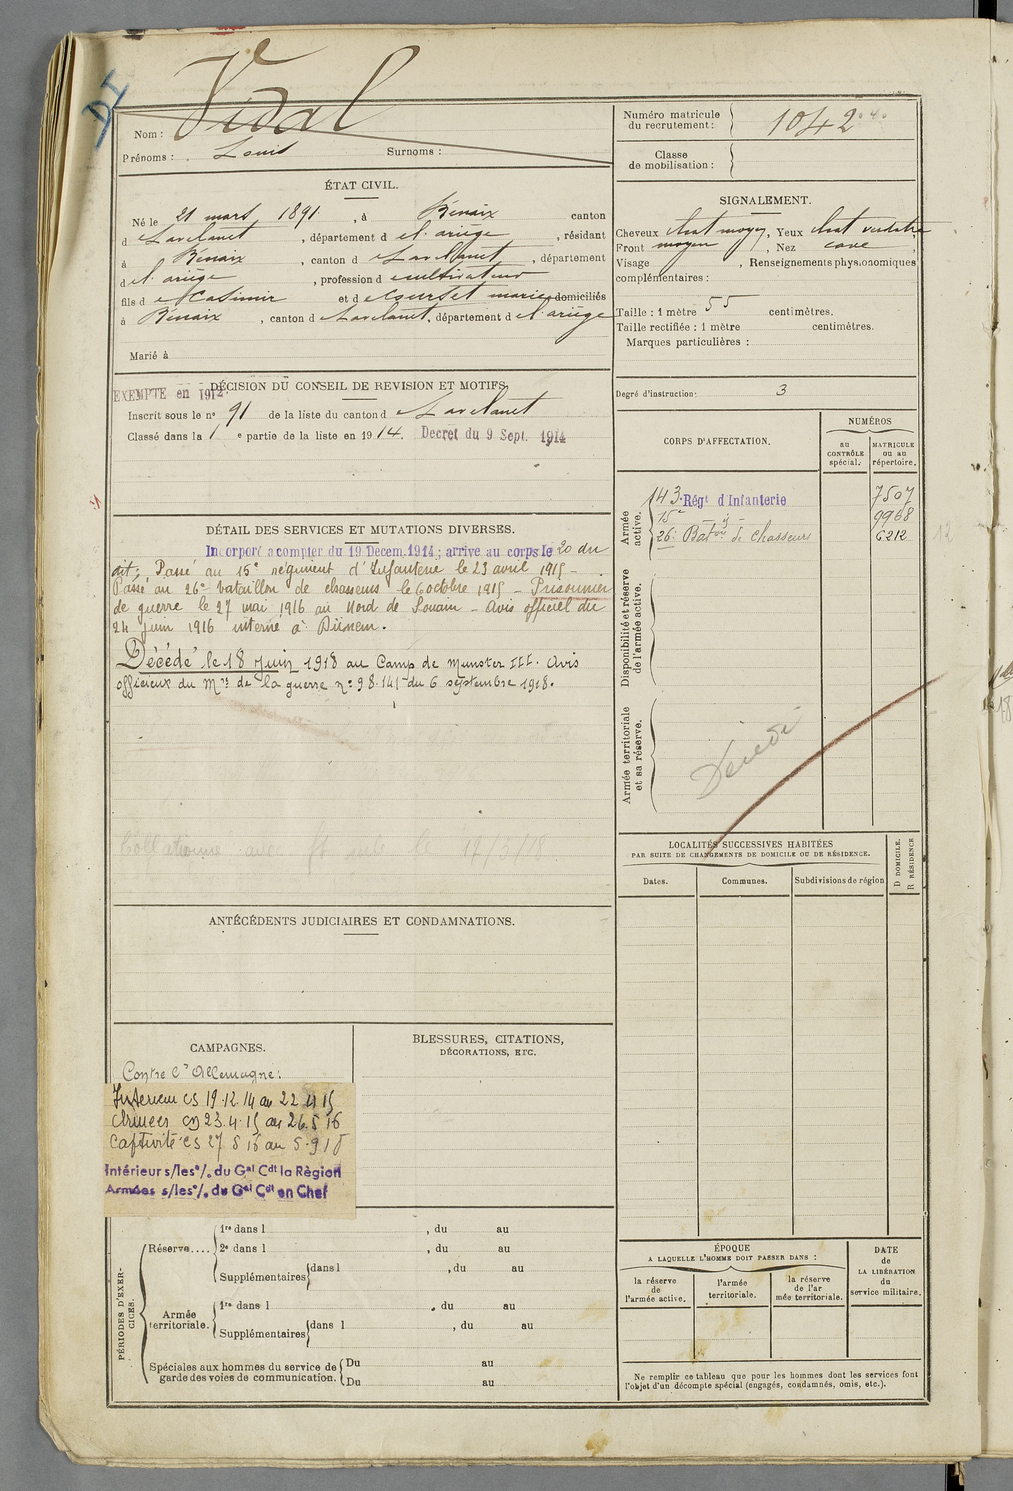 DI
Nom : Vidal
Prénoms : Louis Surnoms :
Numéro matricule
du recrutement : 1042
Classe
de mobilisation :
ÉTAT CIVIL.
Né le 21 mars 1891, à Bénaix canton
d e Lavelanet, département d e l'ariège, résidant
à Bénaix, canton d e Lavelanet, département
d e l'ariège, profession d e cultivateur
fils d e Casimir et d e Courtet marie domiciliés
à Bénaix, canton d e Lavelanet, département d e l'ariège
Marié à
SIGNALEMENT.
Cheveux chat moyen, Yeux chat verdatre
Front moyen, Nez cave,
Visage , Renseignements physionomiques
complémentaires :
Taille : 1 mètre 55 centimètres.
Taille rectifiée : 1 mètre centimètres.
Marques particulières :
DÉCISION DU CONSEIL DE REVISION ET MOTIFS.
EXEMPTE en 1912.
Inscrit sous le n° 91 de la liste du canton d e Lavelanet
Classé dans la 1 e partie de la liste en 1914. Decret du 9 Sept. 1914
Degré d'instruction : 3
CORPS D'AFFECTATION.
NUMÉROS
au
CONTRÔLE
spécial.
MATRICULE
ou au
répertoire.
Armée
active.
143 Régt d'Infanterie 7507
15e d° 9968
26e Bat on de chasseurs 6212
12
Disponibilité et réserve
de l'armée active.
Armée territoriale
et sa réserve.
Décédé
DÉTAIL DES SERVICES ET MUTATIONS DIVERSES.
Incorporé a compter du 19 Decem. 1914 ; arrivé au corps le 20 du
dit ; Passé au 15e régiment d'Infanterie le 23 avril 1915 –
Passé au 26e bataillon de chasseurs le 6 octobre 1915 – Prisonnier
de guerre le 27 mai 1916 au Nord de Souain – Avis officiel du
24 juin 1916 interné à Dülmen.
Décédé le 18 juin 1918 au Camp de Munster III. Avis
officieux du Mre de la guerre n° 98.141 du 6 septembre 1918.
Collationné avec le 12/3/18
LOCALITÉS SUCCESSIVES HABITÉES
PAR SUITE DE CHANGEMENTS DE DOMICILE OU DE RÉSIDENCE.
Dates. Communes. Subdivisions de région
D DOMICILE.
R RÉSIDENCE
ANTÉCÉDENTS JUDICIAIRES ET CONDAMNATIONS.
CAMPAGNES.
Contre l'Allemagne :
Intérieur CS 19.12.14 au 22.4.15
Armées CD 23.4.15 au 26.5.16
Captivité CS 27 5 16 au 5.9.18
Intérieur s/les°/. du Gal Cdt la Règion
Armées s/les°/. du Gal Cdt en Chef
BLESSURES, CITATIONS,
DÉCORATIONS, ETC.
PÉRIODES D'EXER-
CICES.
Réserve....
1re dans l , du au
2e dans l , du au
Supplémentaires dans l , du au
Armée
territoriale.
1re dans l , du au
Supplémentaires dans l , du au
Spéciales aux hommes du service de
garde des voies de communication.
Du au
Du au
ÉPOQUE
A LAQUELLE L'HOMME DOIT PASSER DANS :
la réserve
de
l'armée active.
l'armée
territoriale.
la réserve
de l'ar
mée territoriale.
DATE
de
LA LIBÉRATION
du
service militaire.
Ne remplir ce tableau que pour les hommes dont les services font
l'objet d'un décompte spécial (engagés, condamnés, omis, etc.).